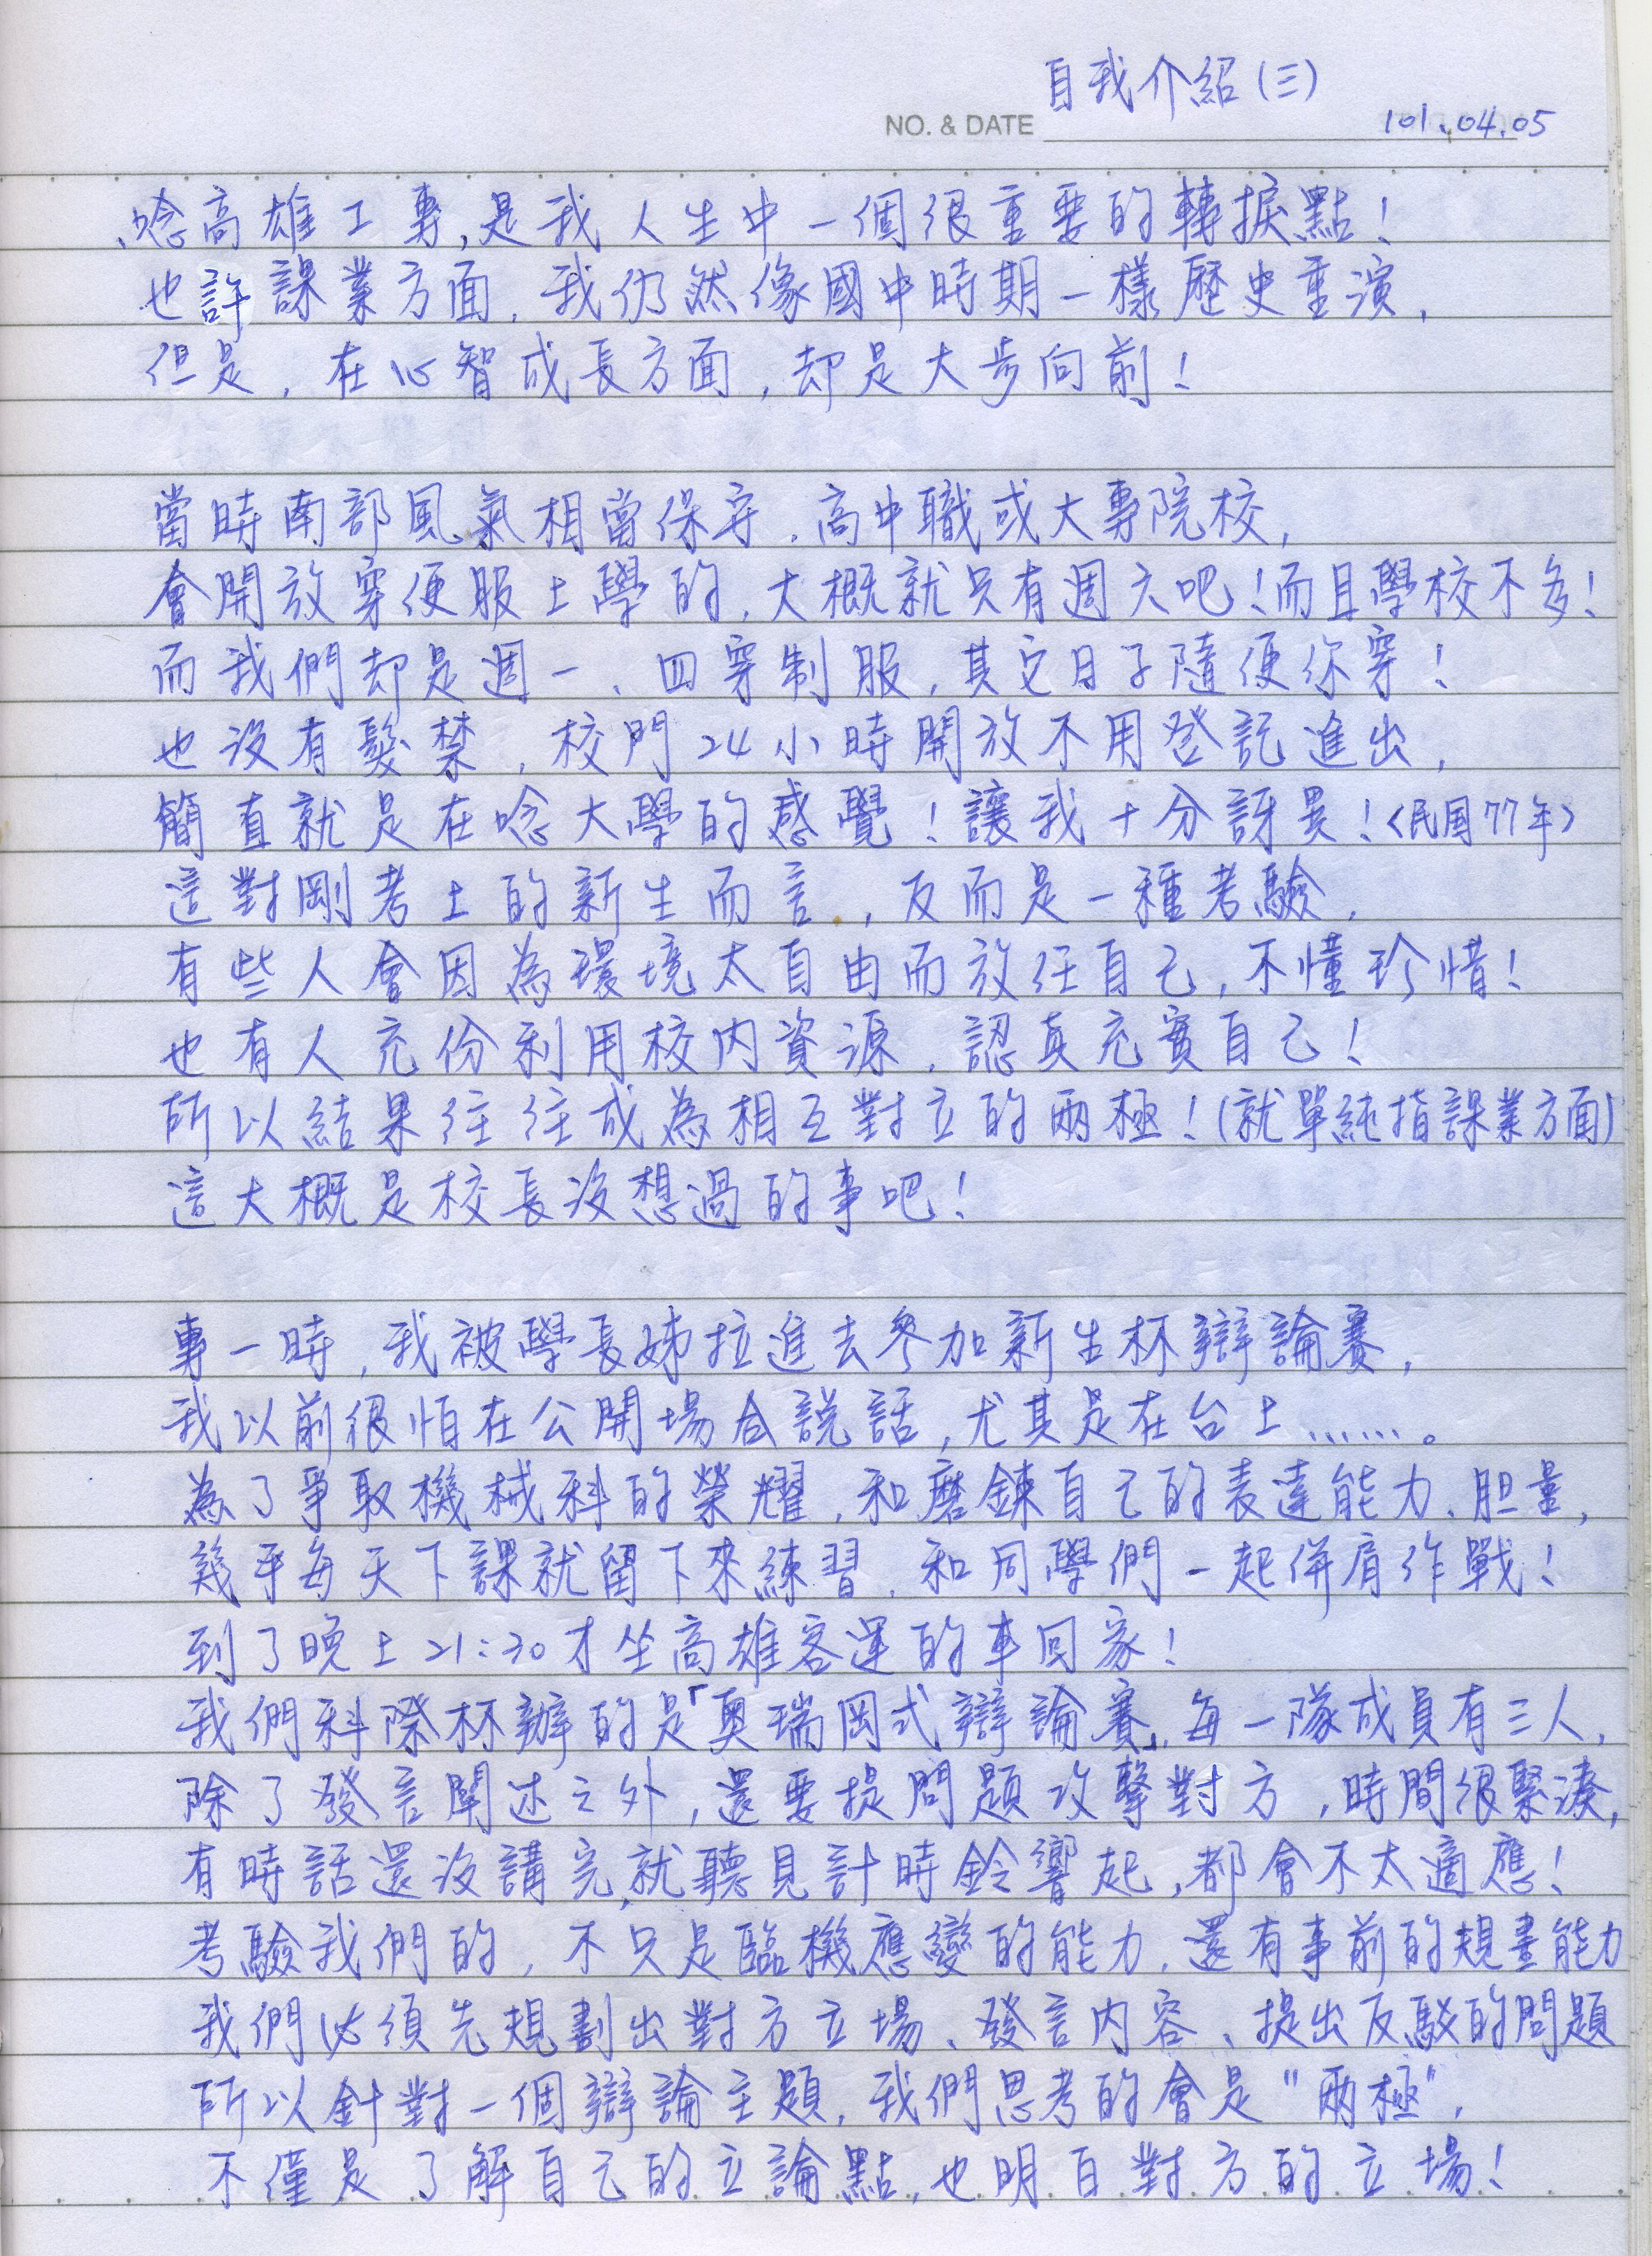 自我介紹(三)
NO. & DATE 101.04.05
唸高雄工專,是我人生中一個很重要的轉捩點!
也許課業方面,我仍然像國中時期一樣歷史重演,
但是,在心智成長方面,却是大步向前!
當時南部風氣相當保守,高中職或大專院校,
會開放穿便服上學的,大概就只有週六吧!而且學校不多!
而我們却是週一、四穿制服,其它日子隨便你穿!
也沒有髮禁,校門24小時開放不用登記進出,
簡直就是在唸大學的感覺!讓我十分訝異!<民国77年>
這對剛考上的新生而言,反而是一種考驗,
有些人會因為環境太自由而放任自己,不懂珍惜!
也有人充份利用校內資源,認真充實自己!
所以結果往往成為相互對立的兩極!(就單純指課業方面)
這大概是校長沒想過的事吧!
專一時,我被學長姊拉進去參加新生杯辯論賽,
我以前很怕在公開場合說話,尤其是在台上……。
為了爭取機械科的榮耀,和磨鍊自己的表達能力、胆量,
幾乎每天下課就留下來練習,和同學們一起併肩作戰!
到了晚上21:30才坐高雄客運的車回家!
我們科際杯辦的是「奧瑞岡式辯論賽」,每一隊成員有三人,
除了發言闡述之外,還要提問題攻擊對方,時間很緊湊,
有時話還沒講完,就聽見計時鈴響起,都會不太適應!
考驗我們的,不只是臨機應變的能力,還有事前的規畫能力
我們必須先規劃出對方立場、發言內容、提出反駁的問題
所以針對一個辯論主題,我們思考的會是"兩極",
不僅是了解自己的立論點,也明白對方的立場!